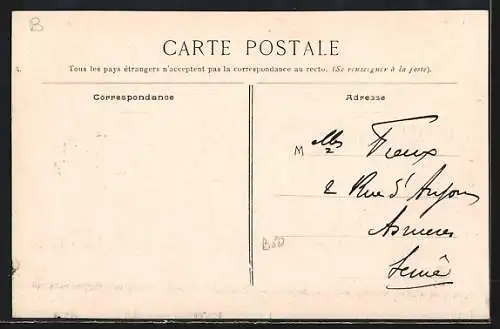 B
CARTE POSTALE
Tous les pays étrangers n'acceptent pas la correspondance au recto. (Se renseigner à la poste).
Correspondance
Adresse
M lles
2 Rue d'Anjou
Asnieres
Seine